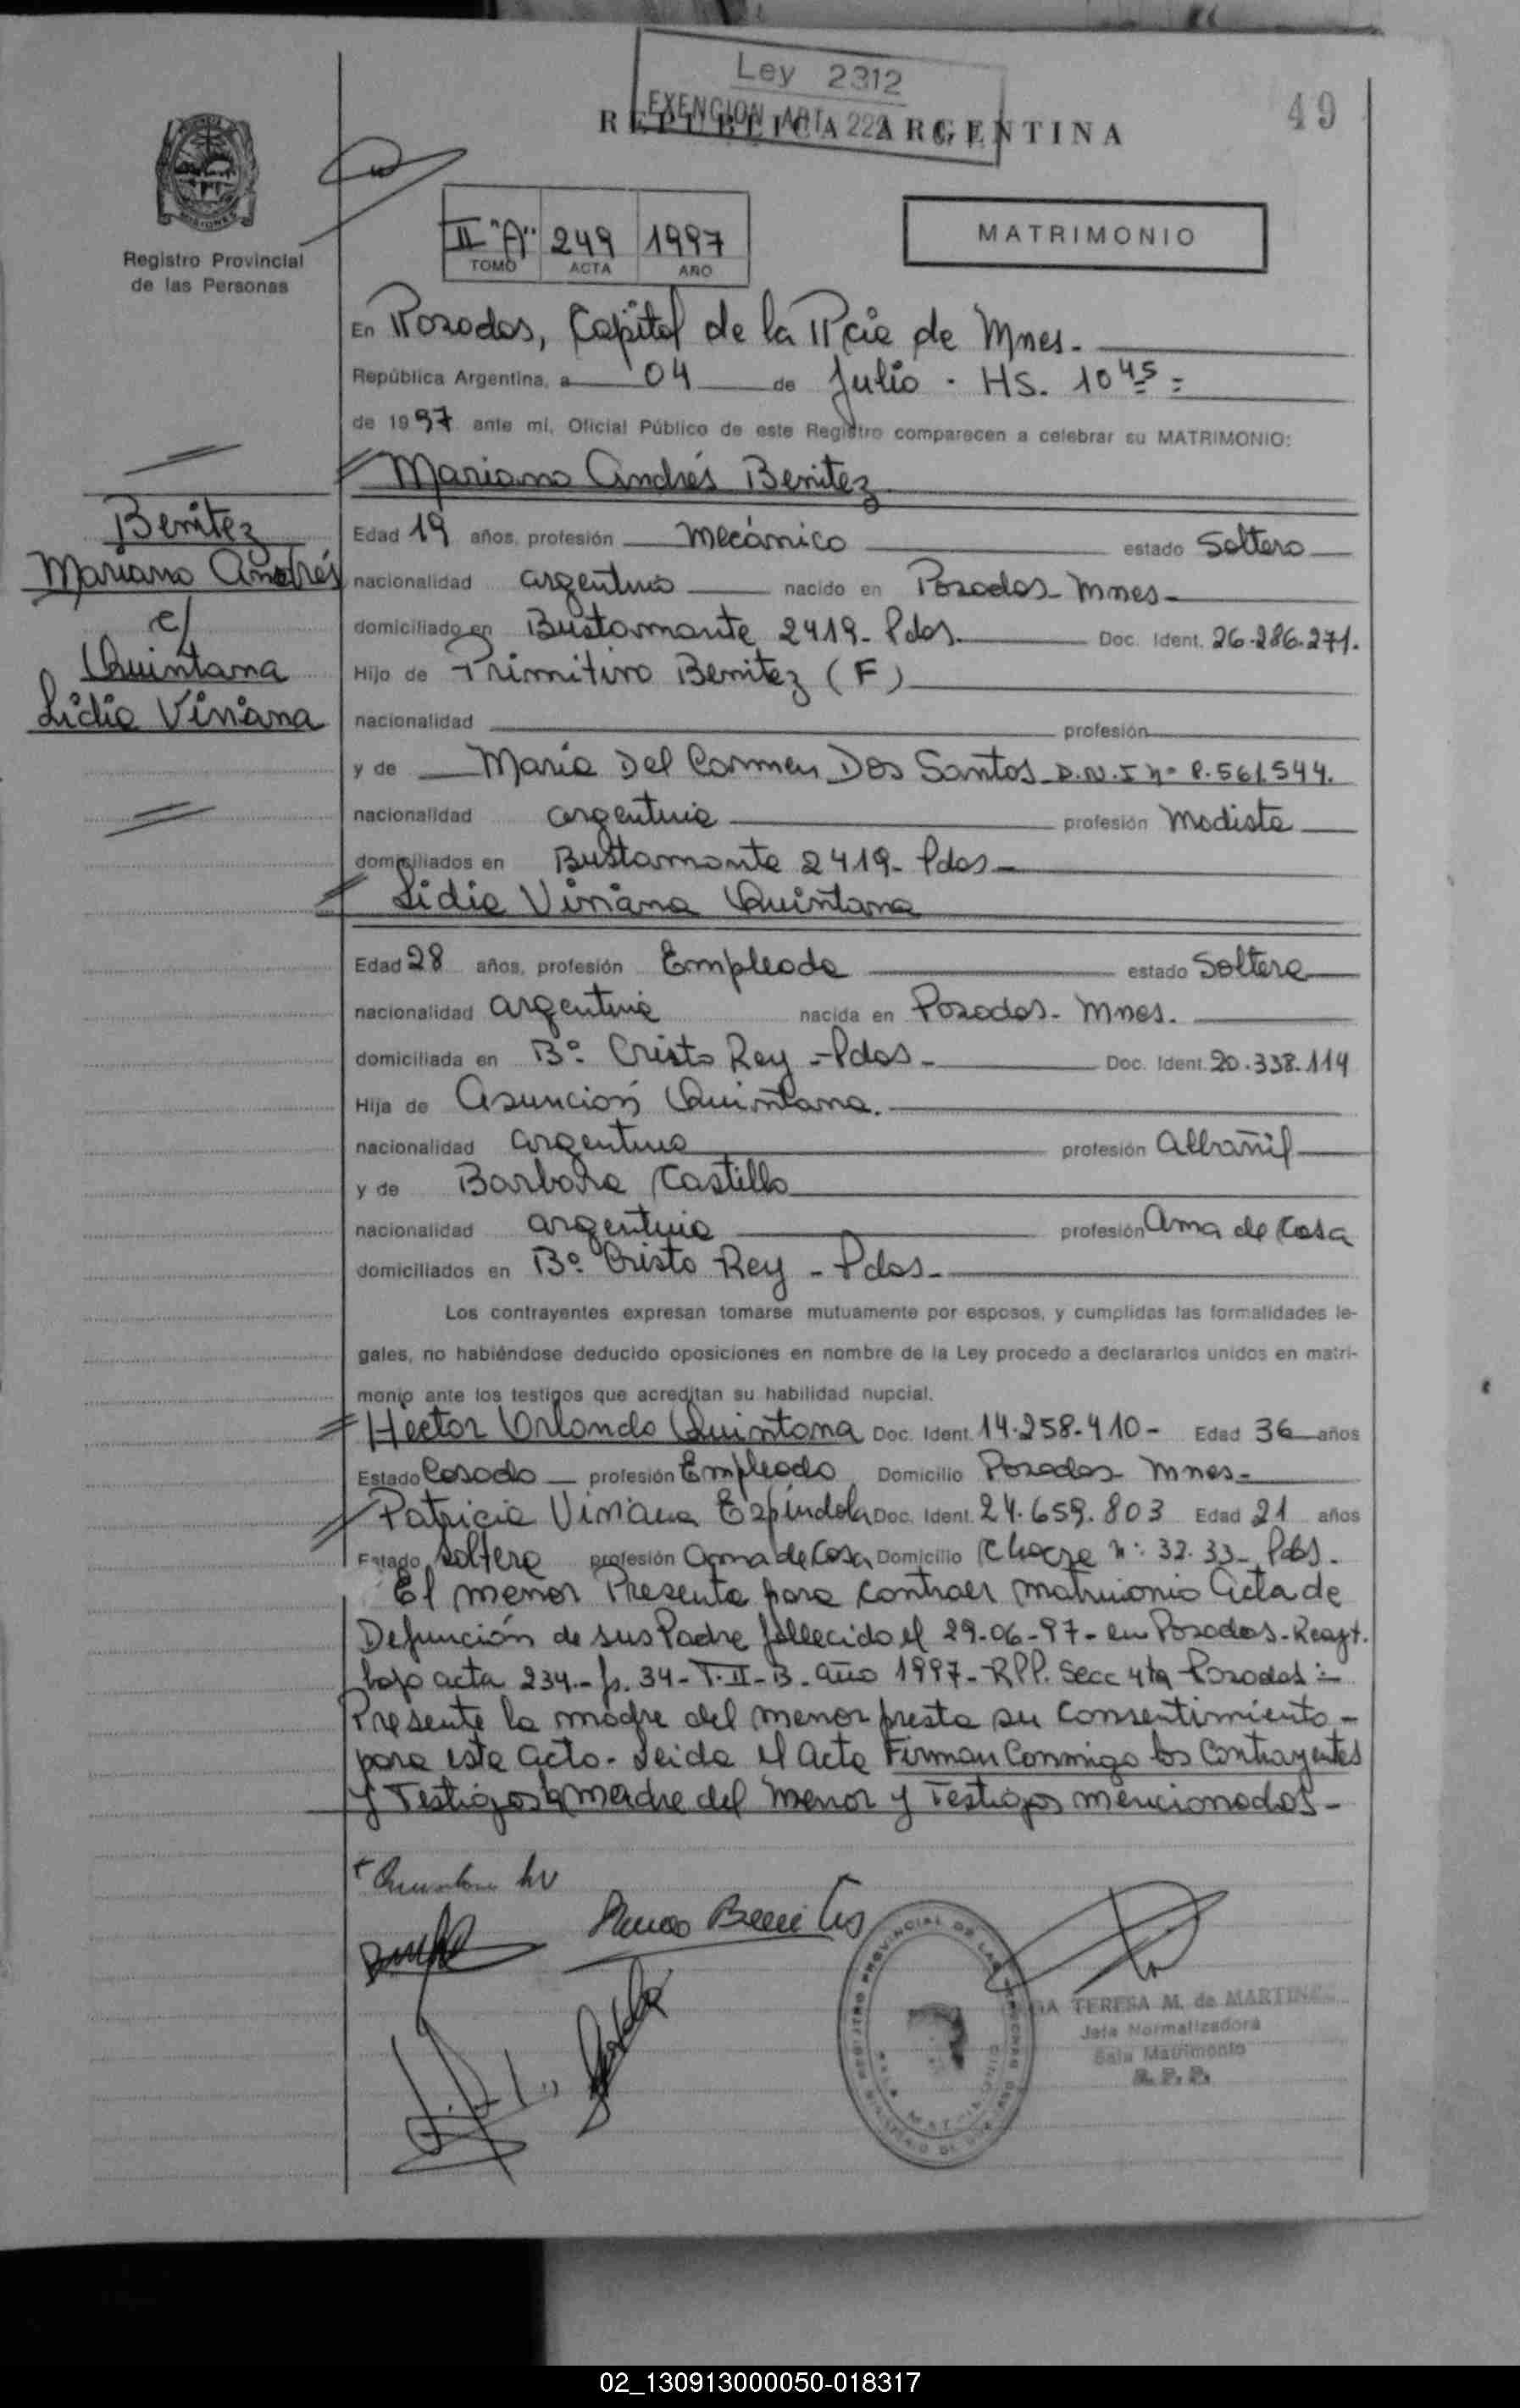 Ley 2312
EXENCION ART. 222
REPUBLICA ARGENTINA
49
MISIONES
Registro Provincial
de las Personas
II "A" 249 1997
TOMO ACTA AÑO
MATRIMONIO
En Posadas, Capital de la Pcia de Mnes.
República Argentina, a 04 de Julio - HS. 10 45 =
de 1997 ante mi, Oficial Público de este Registro comparecen a celebrar su MATRIMONIO:
Mariano Andrés Benitez
Benitez
Mariano Andrés
c/
Quintana
Lidia Viviana
Edad 19 años, profesión Mecánico estado Soltero
nacionalidad argentina nacido en Posadas - Mnes -
domiciliado en Bustamante 2419 - Pdas. Doc. Ident. 26.286.271.
Hijo de Primitivo Benitez (F)
nacionalidad profesión
y de Maria Del Carmen Dos Santos D.N.I nº 8.561.544.
nacionalidad argentina profesión Modista
domiciliados en Bustamante 2419 - Pdas -
Lidia Viviana Quintana
Edad 28 años, profesión Empleada estado Soltera
nacionalidad argentina nacida en Posadas - Mnes.
domiciliada en Bº Cristo Rey - Pdas - Doc. Ident. 20.338.114
Hija de Asunción Quintana.
nacionalidad argentina profesión Albañil
y de Barbara Castillo
nacionalidad argentina profesión Ama de Casa
domiciliados en Bº Cristo Rey - Pdas -
Los contrayentes expresan tomarse mutuamente por esposos, y cumplidas las formalidades le-
gales, no habiéndose deducido oposiciones en nombre de la Ley procedo a declararlos unidos en matri-
monio ante los testigos que acreditan su habilidad nupcial.
Hector Orlando Quintana Doc. Ident. 14.258.410 - Edad 36 años
Estado Casado profesión Empleado Domicilio Posadas - Mnes -
Patricia Viviana Espíndola Doc. Ident. 24.659.803 Edad 21 años
Estado Soltera profesión Ama de Casa Domicilio Chacra nº: 32.33 - Pdas.
El menor Presenta para contraer matrimonio Acta de
Defunción de sus Padre fallecido el 29-06-97 - en Posadas -
bajo acta 234 - fs. 34 - T. II - B - año 1997 - RPP. Secc 4ta Posadas :-
Presente la madre del menor presta su Consentimiento -
para este acto - Leida el Acta Firman Conmigo los Contrayentes
y Testigos madre del Menor y Testigos mencionados -
Benitez
TERESA M. de MARTINEZ
Jefa Normalizadora
Sala Matrimonio
R. P. P.
02_130913000050-018317